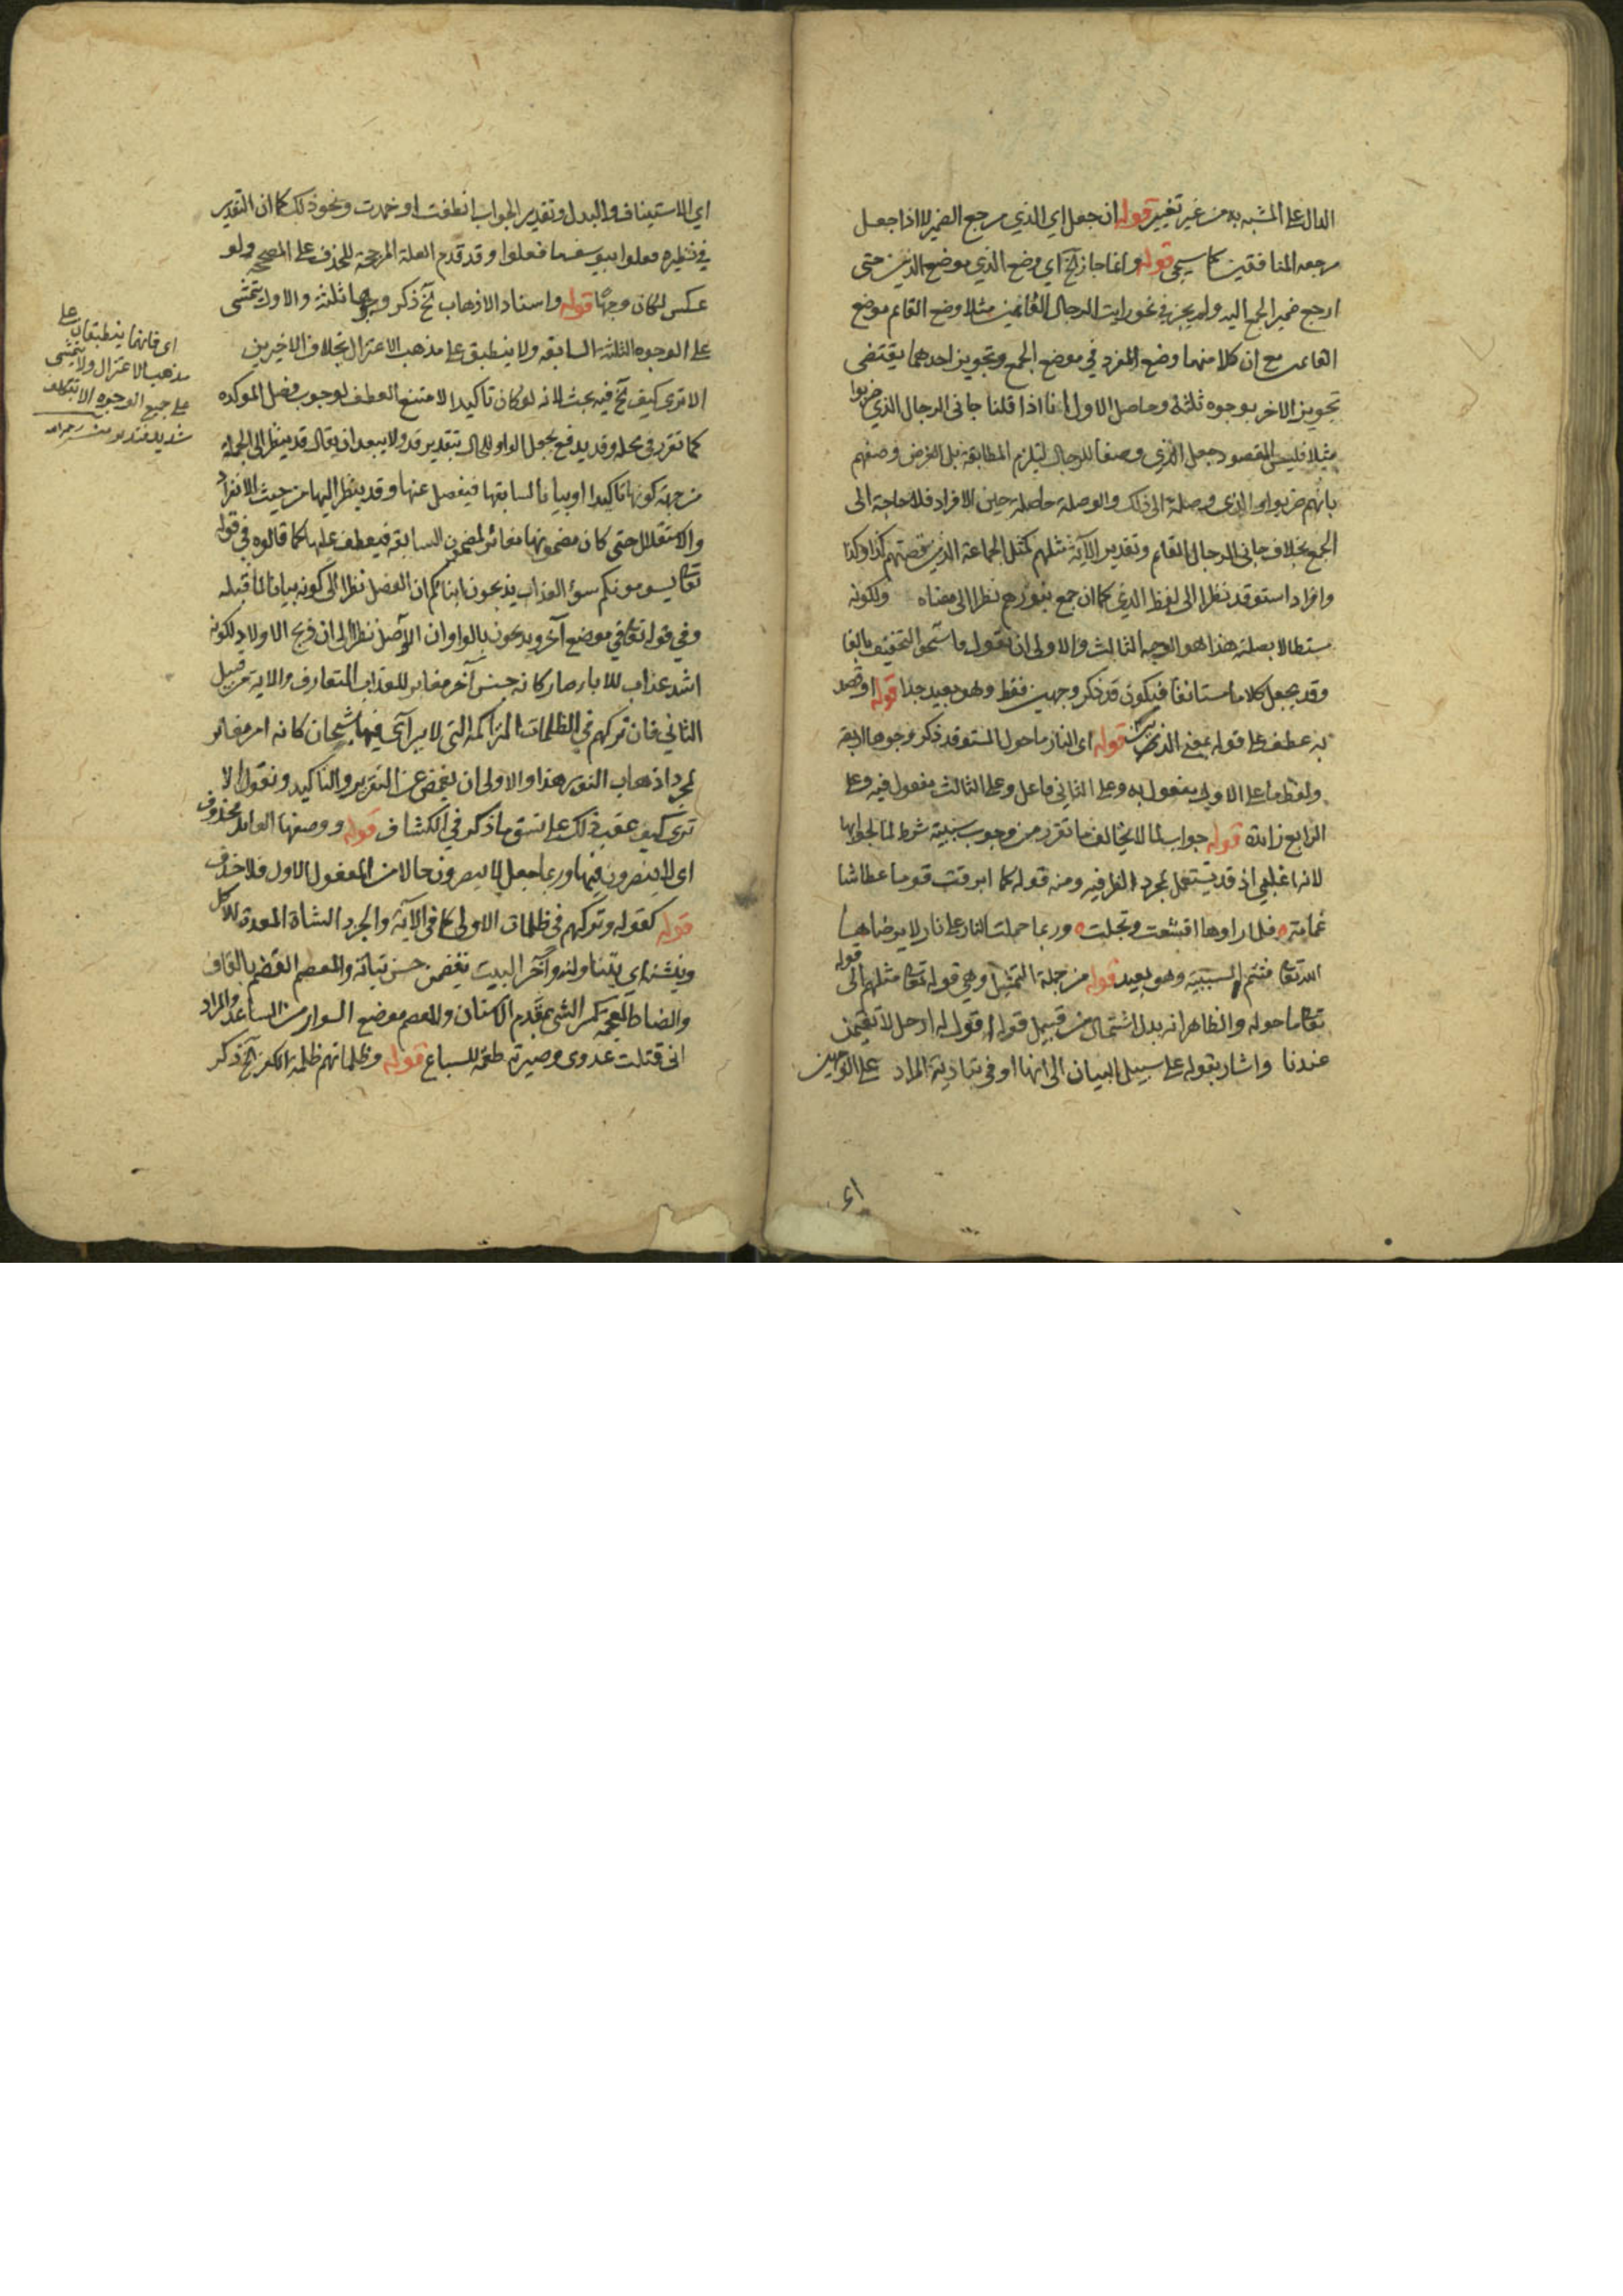 الدال على المشبه به من غير تغيير قوله ان جعل اي الذي مرجع الضمير لا اذا جعل
مرجعه المنافقين كما سيجئ قوله وانما جاز آلخ اي وضع الذي موضع الذين حتى
ارجع ضمير الجمع اليه ولم يجز في نحو رايت الرجال القائمين مثلا وضع القائم موضع
القائمين مع ان كلا منهما وضع المفرد في موضع الجمع وتجويز احدهما يقتضى
تجويز الاخر بوجوه ثلثة وحاصل الاول انا اذا قلنا جانى الرجال الذي ضربوا
مثلا فليس المقصود جعل الذي وصفا للرجال ليلزم المطابقة بل الغرض وصفهم
بانهم ضربوا والذي وصلة الى ذلك والوصلة حاصلة حين الافراد فلا حاجة الى
الجمع بخلاف جانى الرجال القائم وتقدير الآية مثلهم كمثل الجماعة الذين قصتهم كذا وكذا
وافراد استوقد نظرا الى لفظ الذي كما ان جمع بنورهم نظرا الى معناه ولكونه
مستطالا بصلته هذا هو الوجه الثالث والاولى ان يقول فاستحق التخفيف بالفا
وقد يجعل كلاما مستانفا فيكون قد ذكر وجهين فقط وهو بعيد جدا قوله او قصد
به عطف على قوله بمعنى الذين قوله اى النار ما حول المستوقد ذكر وجوها اربعة
ولفظ ما على الاول مفعول به وعلى الثاني فاعل وعلى الثالث مفعول فيه وعلى
الرابع زائدة قوله جواب لما لا يخالف ما تقرر من وجوب سببية شرط لما لجوابها
لانه اغلبي اذ قد يستعمل لمجرد الظرفية ومنه قوله كما ابرقت قوما عطاشا
غمامة فلما راوها اقشعت وتجلت وربما حملت النار على نار لا يرضاها
الله تعالى فتتم السببية وهو بعيد قوله من جملة التمثيل وهي قوله تعالى مثلهم الى قوله
تعالى ما حوله والظاهر انه بدل اشتمال من قبيل قوله اقول له ارحل لا تقيمن
عندنا واشار بقوله على سبيل البيان الى انها اوفى بتادية المراد على الوجهين
اى
اي الاستيناف والبدل وتقدير الجواب انطفت او خمدت ونحو ذلك كما ان التقدير
في نظيره فعلوا بيوسف ما فعلوا وقد قدم العلة المرجحة للحذف على المصححة ولو
عكس لكان وجها قوله واسناد الاذهاب آلخ ذكر وجوها ثلثة والاول يتمشى
على الوجوه الثلثة السابقة ولا ينطبق على مذهب الاعتزال بخلاف الاخيرين
الا ترى كيف آلخ فيه بحث لانه لو كان تاكيدا لامتنع العطف لوجوب فصل الموكده
كما تقرر في محله وقد يدفع بجعل الواو للحال بتقدير قد ولا يبعد ان يقال قد ينظر الى الجملة
من جهة كونها تاكيدا او بيانا لسابقها فيفصل عنها وقد ينظر اليها من حيث الانفراد
والاستقلال حتى كان مضمونها مغائر لمضمون السابقة فيعطف عليها كما قالوه في قوله
تعالى يسومونكم سوء العذاب يذبحون ابنائكم ان الفصل نظرا الى كونه بيانا لما قبله
وفي قوله تعالى في موضع آخر ويذبحون بالواو ان الوصل نظرا الى ان ذبح الاولاد لكونه
اشد عذاب للاباء صار كانه جنس آخر مغاير للعذاب المتعارف والاية من قبيل
الثاني فان تركهم في الظلمات المتراكمة التي لا يترآى فيها شبحان كانه امر مغائر
لمجرد اذهاب النور هذا والاولى ان يغمض عن التقرير والتاكيد ونقول الا
ترى كيف عقب ذلك على نسق ما ذكر في الكشاف قوله ووصفها العايد محذوف
اى لا يبصرون فيها وربما جعل لا يبصرون حالا من المفعول الاول فلا حذف
قوله كقوله وتركهم في ظلمات الاولى كما في الآية والجزر الشاة المعدة للاكل
وينشنه اي يتناولنه وآخر البيت يقضمن حسن بنانه والمعصم القضم بالقاف
والضاد المعجمة كسر الشئ بمقدم الاسنان والمعصم موضع السوار من الساعد والمراد
انى قتلت عدوى وصيرته طعمة للسباع قوله وظلماتهم ظلمة الكفر آلخ ذكر
اى فانهما ينطبقان على
مذهب الاعتزال ولا يتمشى
على جميع الوجوه الا بتكلف
شديد فتدبر منه رحمه الله